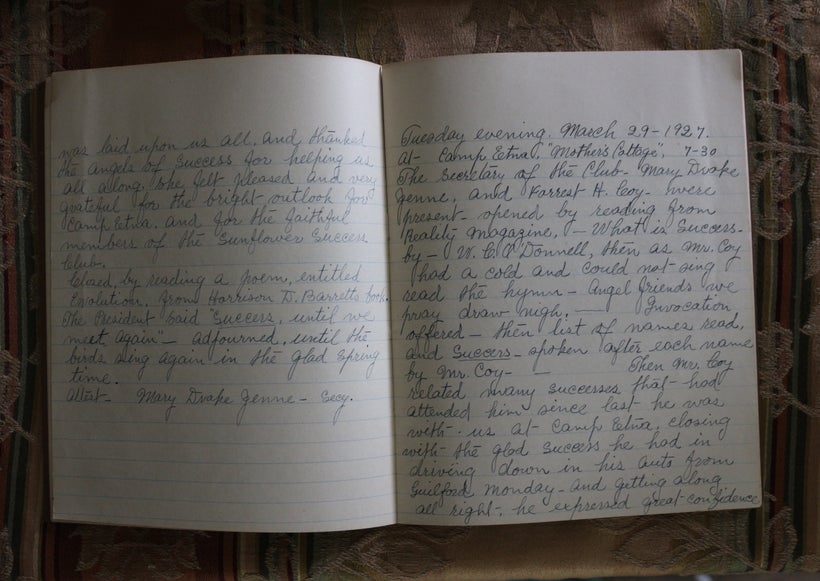 was laid upon us all, and thanked
the angels of Success for helping us
all along. She felt pleased and very
grateful for the bright outlook for
Camp Etna, and for the faithful
members of the Sunflower Success
Club.
Closed, by reading a poem, entitled
Evolution, from Harrison D. Barretts book.
The President said "Success, until we
meet again" - adjourned, until the
birds sing again in the glad Spring
time.
Attest - Mary Drake Jenne - Secy.
Tuesday evening. March 29 - 1927.
at - Camp Etna, "Mother's Cottage", 7-30
The Secretary of the Club - Mary Drake
Jenne, and Forrest H. Coy - were
present - opened by reading from
Reality Magazine, - What is Success -
by - W. C. O'Donnell, then as Mr. Coy
had a cold and could not sing
read the hymn - Angel friends we
pray draw nigh. - Invocation
offered - then list of names read,
and Success - spoken after each name
by Mr. Coy - - Then Mr. Coy
related many successes that had
attended him since last he was
with us at Camp Etna, closing
with the glad Success he had in
driving down in his auto from
Guilford Monday - and getting along
all right, he expressed great confidence